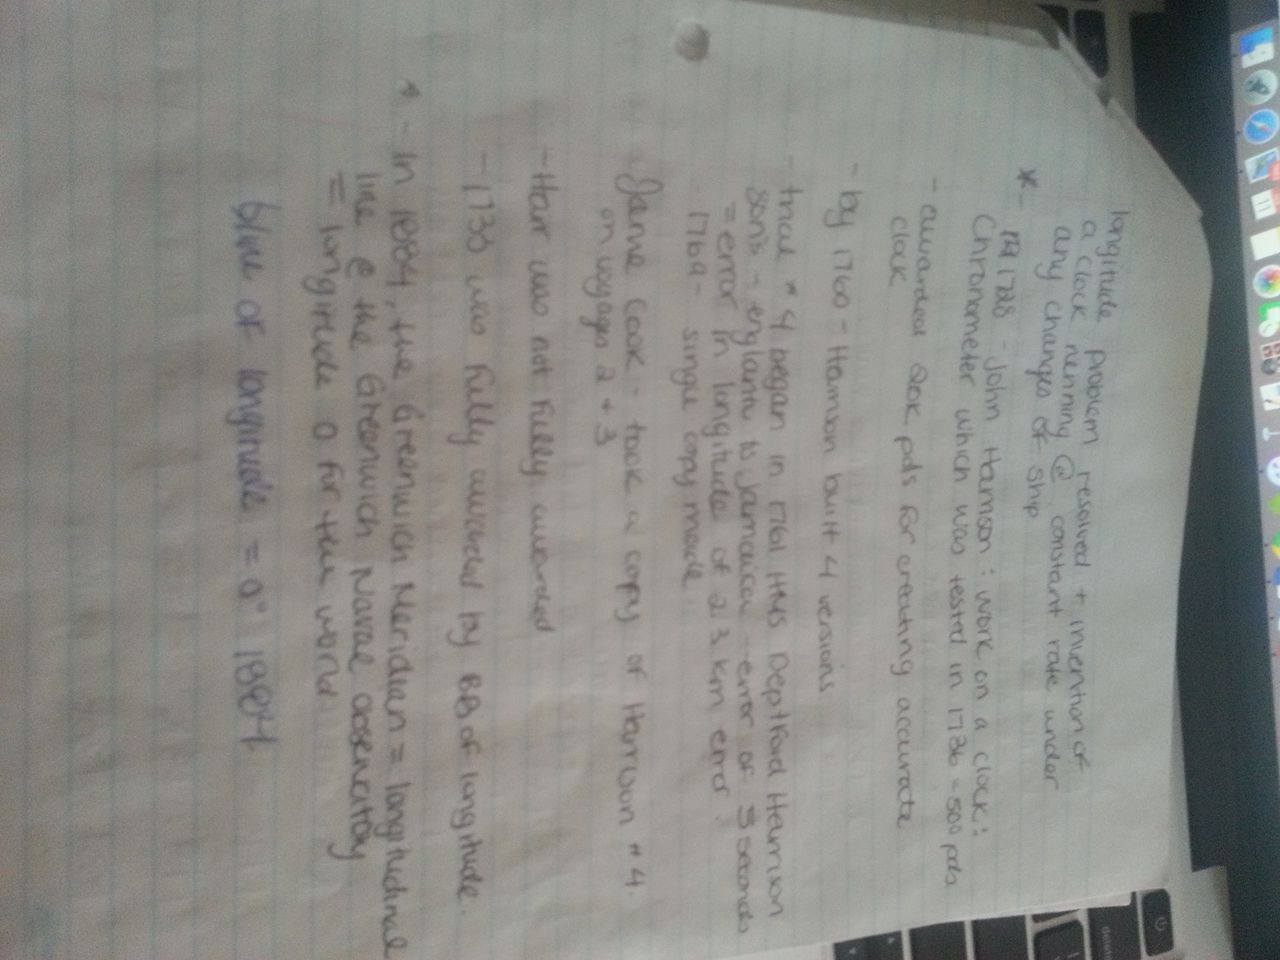 longitude problem resolved + invention of
a clock running @ constant rate under
any changes of ship
* - 1728 - John Harrison: work on a clock:
Chronometer which was tested in 1736 = 500 pds
- awarded 20K pds for creating accurate
clock
- by 1760 - Harrison built 4 versions
- trial #4 began in 1761 HMS Deptford Harrison
sons - england to Jamaica - error of 5 seconds
= error in longitude of 2.3 km error.
1769 - single copy made.
- Jame Cook - took a copy of Harrison #4.
on voyages 2 + 3
- Harr was not fully awarded
- 1738 was fully awarded by BB of longitude.
* - In 1884, the Greenwich Meridian = longitudinal
line @ the Greenwich Naval obsencitroy
= longitude 0 for the world
of longitude = 0° 1884.